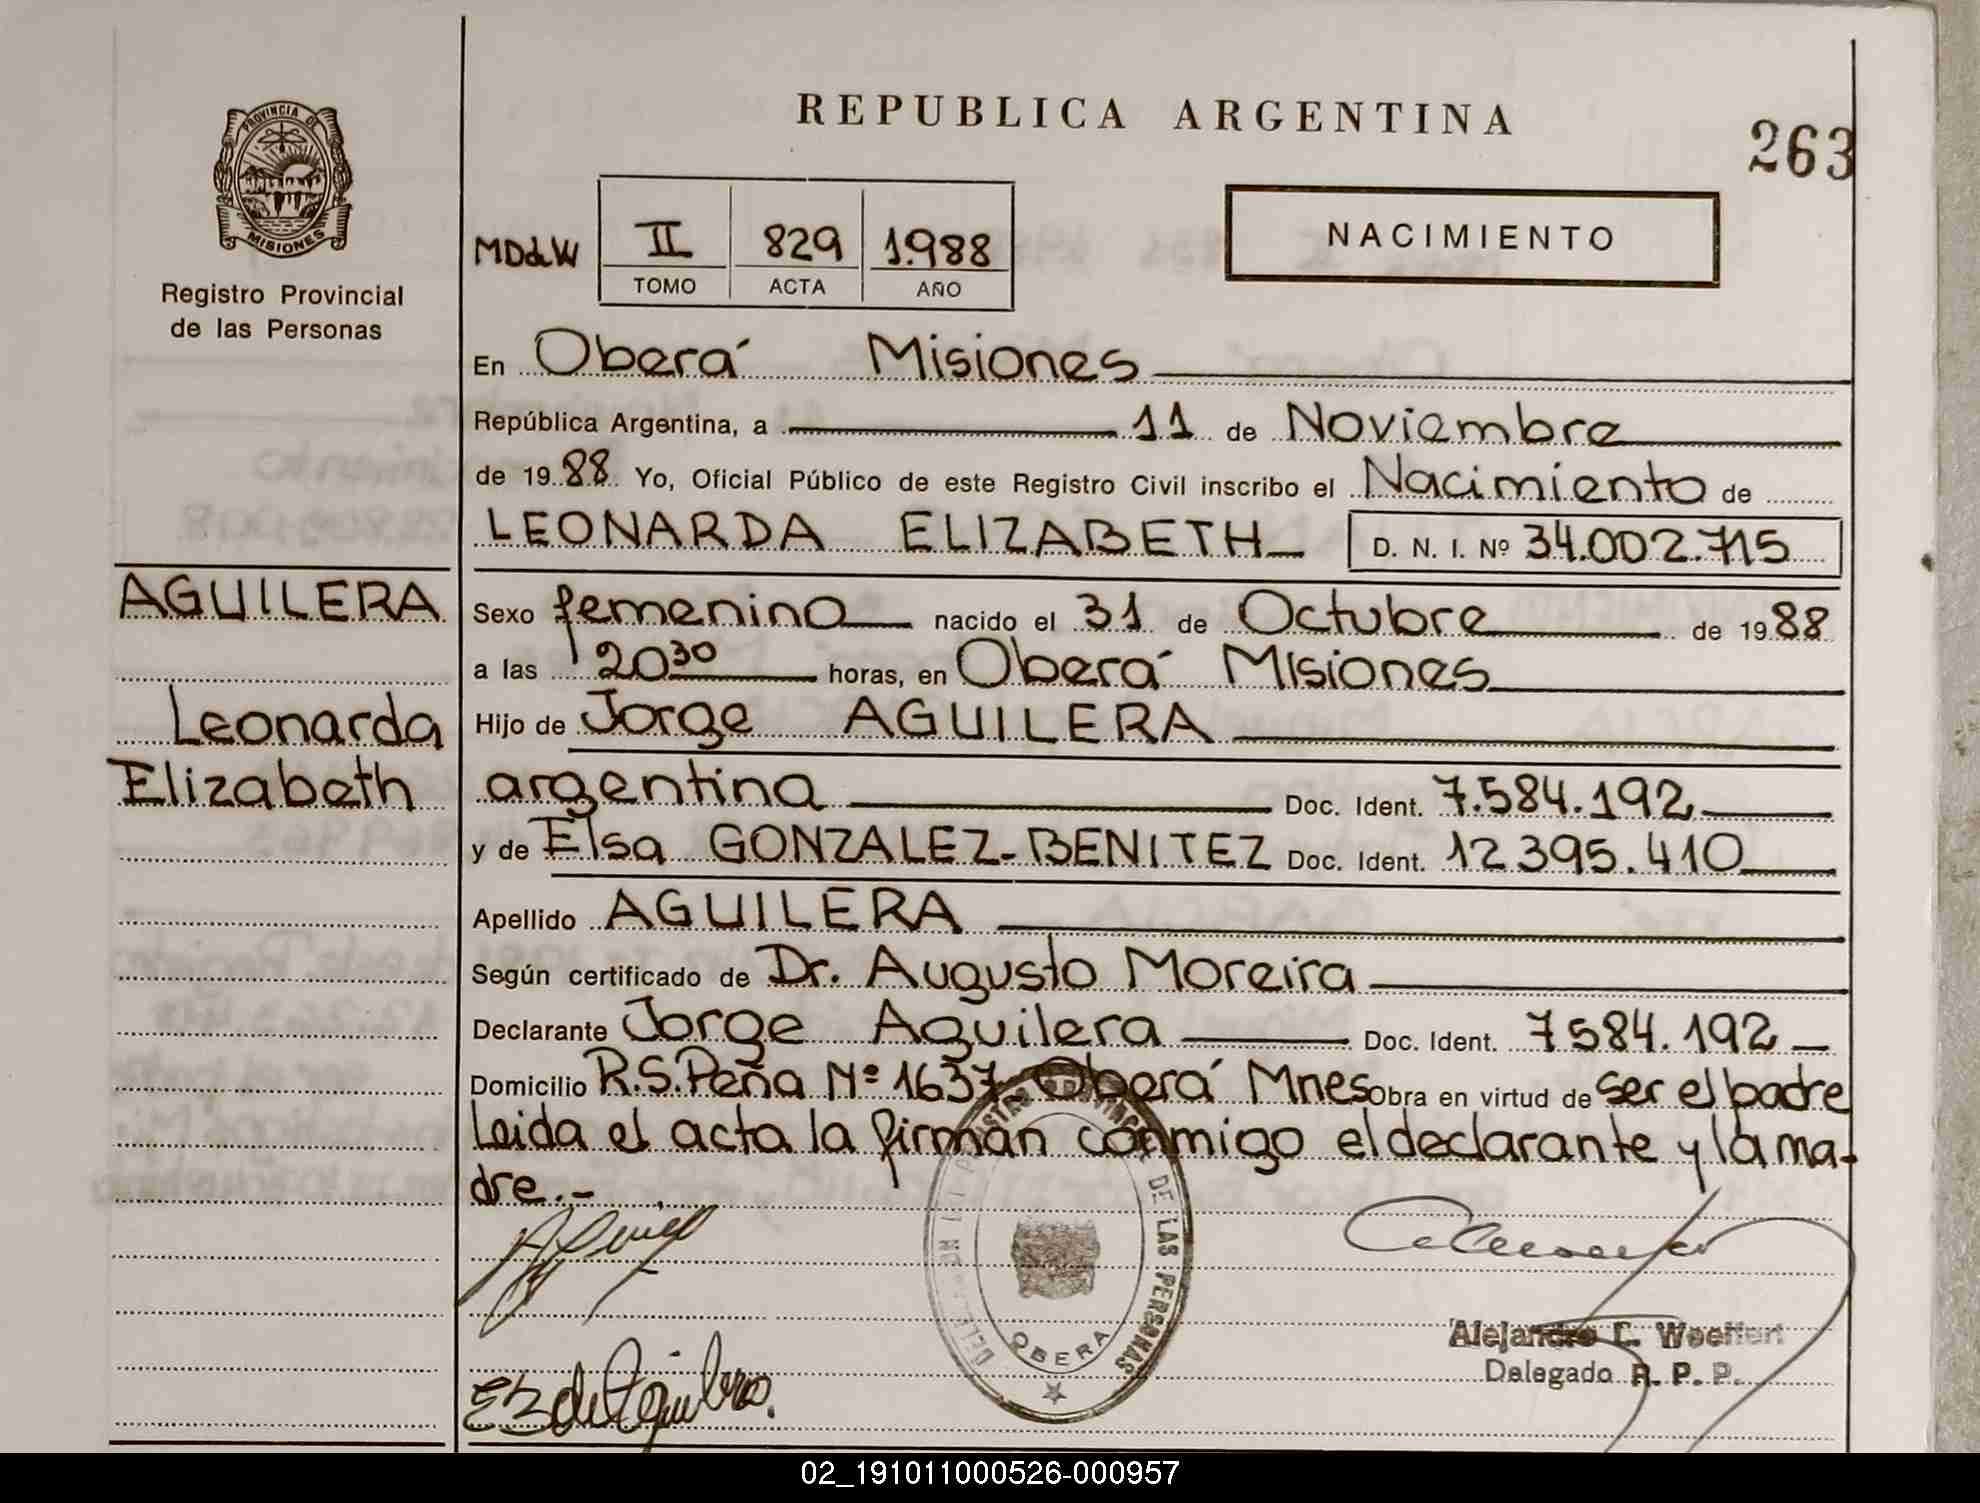 REPUBLICA ARGENTINA
263
PROVINCIA DE
MISIONES
Registro Provincial
de las Personas
MDdW
II 829 1.988
TOMO ACTA AÑO
NACIMIENTO
En Oberá Misiones
República Argentina, a 11 de Noviembre
de 1988 Yo, Oficial Público de este Registro Civil inscribo el Nacimiento de
LEONARDA ELIZABETH D. N. I. Nº 34.002.715
AGUILERA
Leonarda
Elizabeth
Sexo femenino nacido el 31 de Octubre de 1988
a las 20 30 horas, en Oberá Misiones
Hijo de Jorge AGUILERA
argentina Doc. Ident. 7.584.192
y de Elsa GONZALEZ-BENITEZ Doc. Ident. 12395.410
Apellido AGUILERA
Según certificado de Dr. Augusto Moreira
Declarante Jorge Aguilera Doc. Ident. 7584.192
Domicilio R.S.Peña Nº 1637 Oberá Mnes Obra en virtud de ser el padre
Leida el acta la firman conmigo el declarante y la ma-
dre.-
DE LAS PERSONAS
OBERA
E B de Aguilera
Delegado R. P. P.
02_191011000526-000957